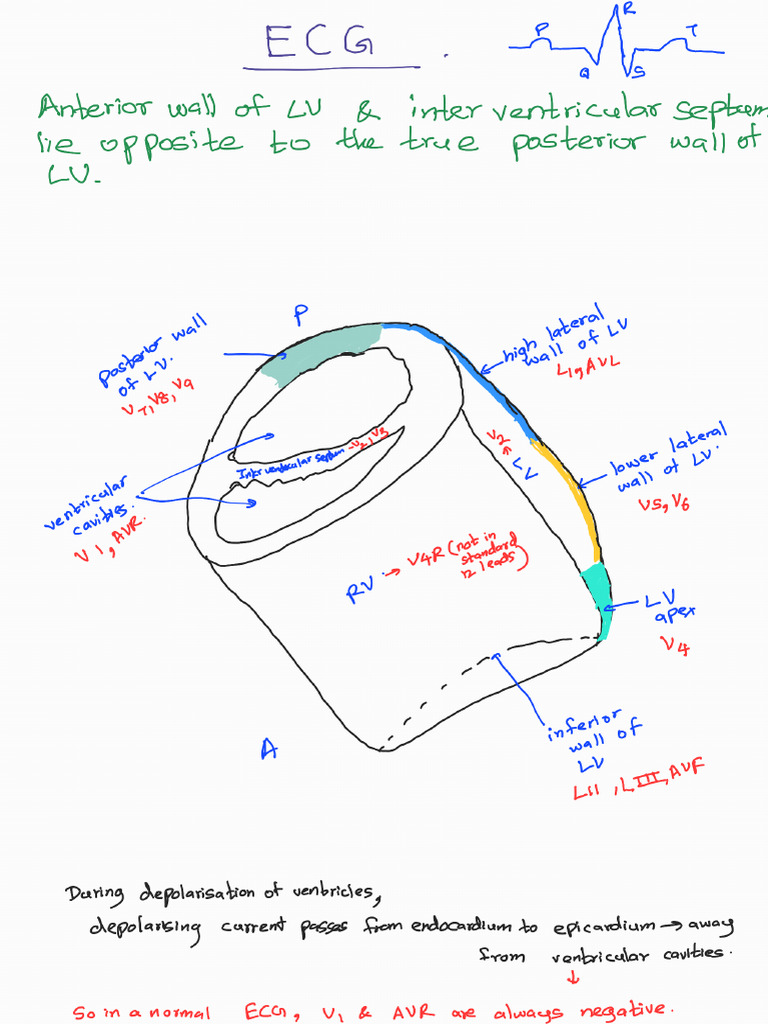 ECG.
P R T
Q S
Anterior wall of LV & inter ventricular septum
lie opposite to the true posterior wall of
LV.
P
posterior wall
of LV.
V7, V8, V9
high lateral
wall of LV
L1, AVL
Inter ventricular septum - V2, V3
LV
lower lateral
wall of LV.
V5, V6
ventricular
cavities.
V1, AVR.
RV → V4R (not in
standard
12 leads)
LV
apex
V4
A
inferior
wall of
LV
LII, LIII, AVF
During depolarisation of ventricles,
depolarising current passes from endocardium to epicardium → away
from ventricular cavities.
↓
So in a normal ECG, V1 & AVR are always negative.